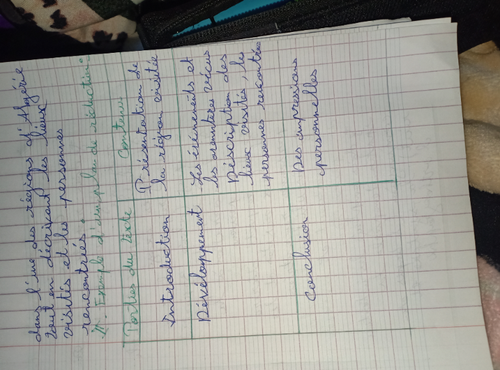 dans l'une des régions d'Algérie
tout en décrivant les lieux
visités et les personnes
rencontrées.
Exemple d'un plan de rédaction:
Parties du texte Contenu
Introduction Présentation de
la région visitée
Développement Les événements et
les aventures vécus
Description des
lieux visités, les
personnes rencontrées
Conclusion Des impressions
personnelles